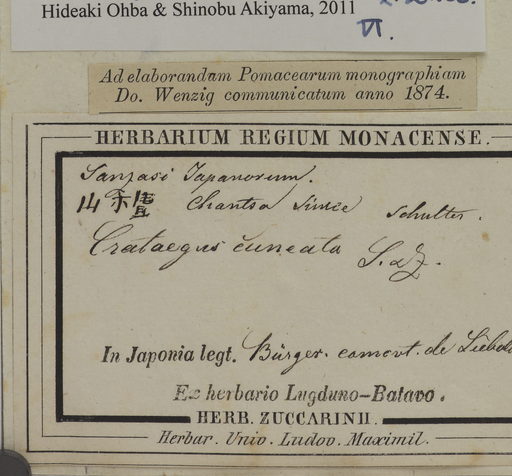 Hideaki Ohba & Shinobu Akiyama, 2011
VI.
Ad elaborandam Pomacearum monographiam
Do. Wenzig communicatum anno 1874.
HERBARIUM REGIUM MONACENSE.
Sanzasi Japanorum.
山樝 Chantsa Sinice Schultes.
Crataegus cuneata S. & Z.
In Japonia legt. Bürger. comont. de Siebold
Ex herbario Lugduno-Batavo.
HERB. ZUCCARINII.
Herbar. Univ. Ludov. Maximil.